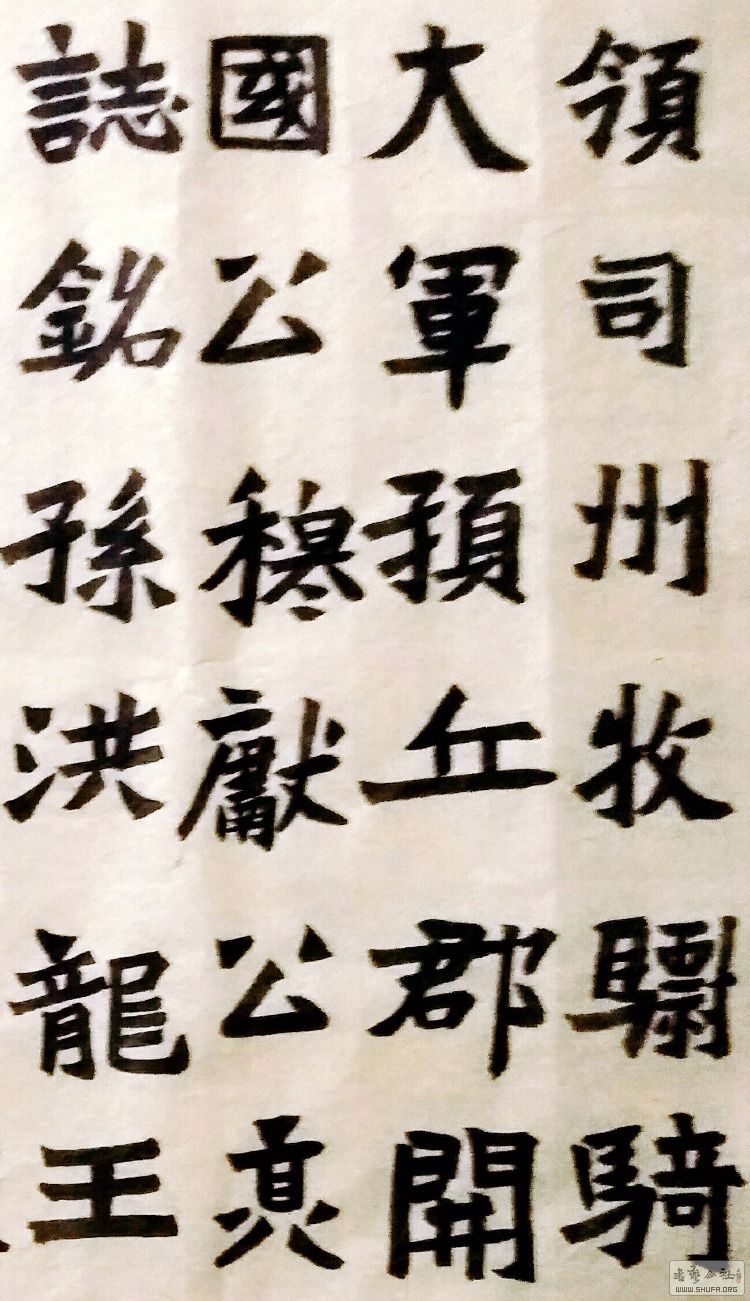 領司州牧驃騎
大軍頓丘郡開
國公穆獻公亮
誌銘孫洪龍王
书艺公社
WWW.SHUFA.ORG